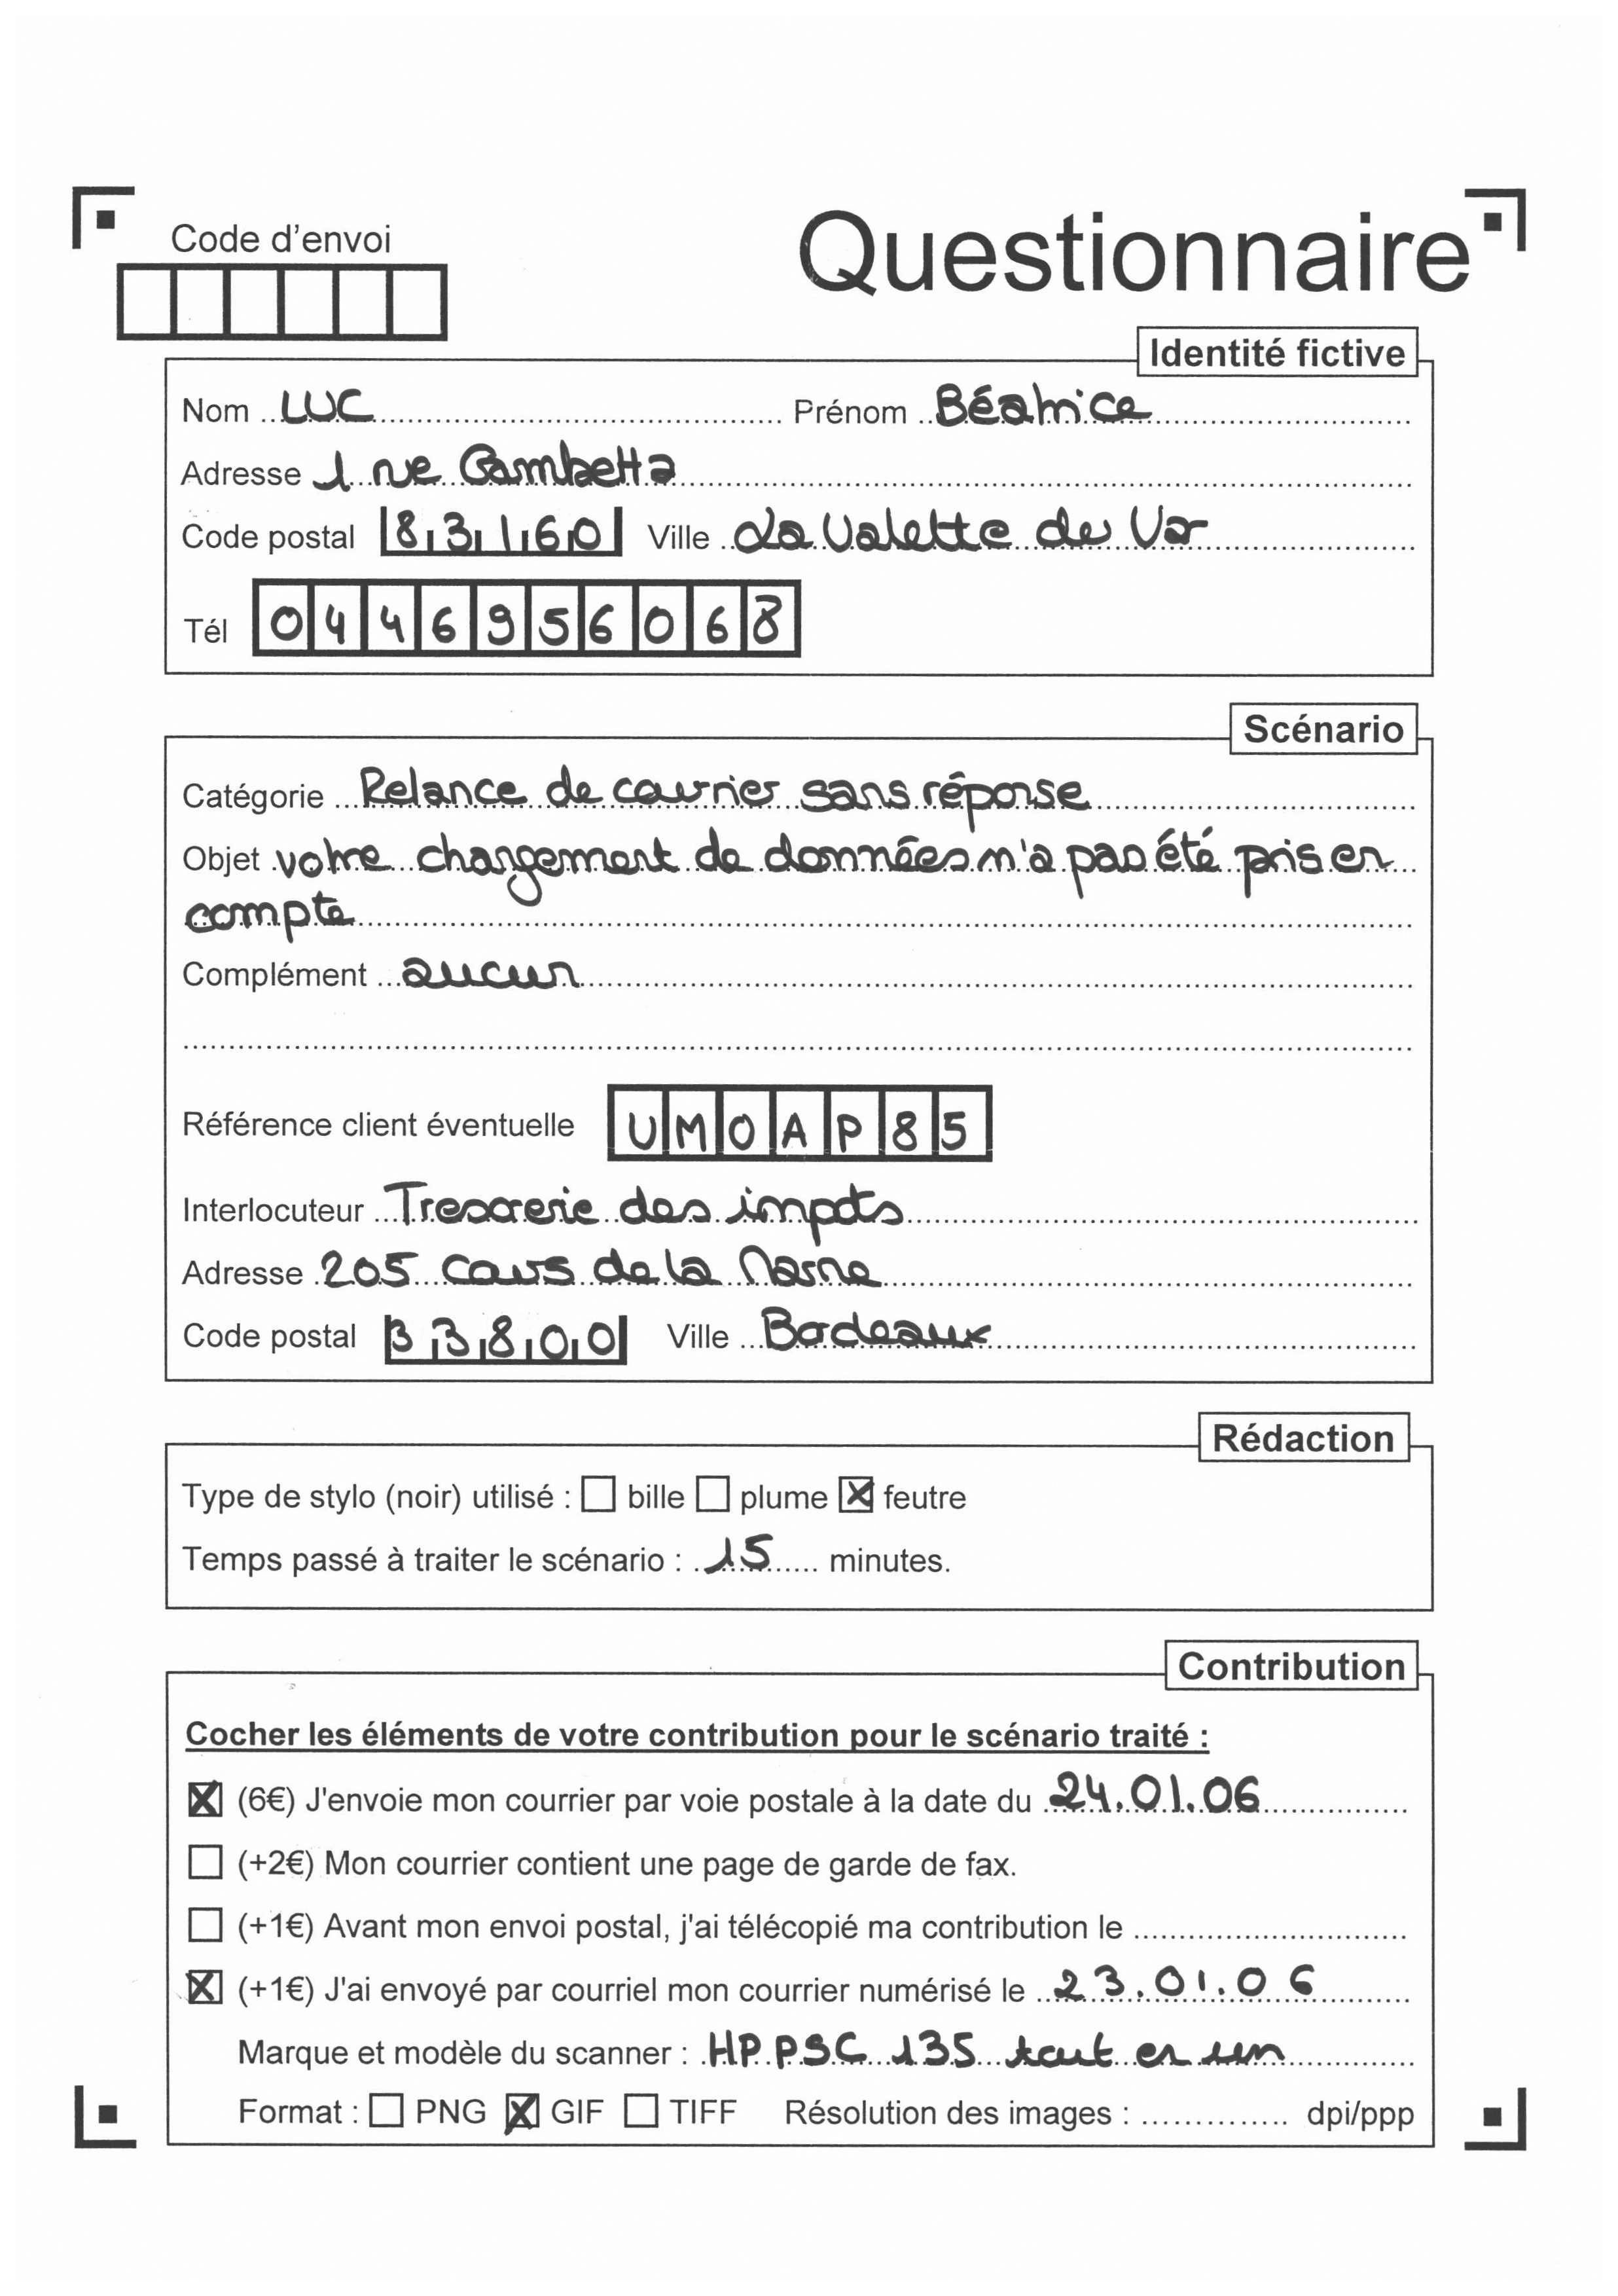 Code d'envoi
Questionnaire
Identité fictive
Nom LUC Prénom Béatrice
Adresse 1 rue Gambetta
Code postal 83160 Ville La Valette du Var
Tél 0446956068
Scénario
Catégorie Relance de courrier sans réponse
Objet votre changement de données n'a pas été pris en
compte
Complément aucun
Référence client éventuelle UMOAP85
Interlocuteur Tresorerie des impots
Adresse 205 cours de la Marne
Code postal 33800 Ville Bordeaux
Rédaction
Type de stylo (noir) utilisé : bille plume feutre
Temps passé à traiter le scénario : 15 minutes.
Contribution
Cocher les éléments de votre contribution pour le scénario traité :
(6€) J'envoie mon courrier par voie postale à la date du 24.01.06
(+2€) Mon courrier contient une page de garde de fax.
(+1€) Avant mon envoi postal, j'ai télécopié ma contribution le
(+1€) J'ai envoyé par courriel mon courrier numérisé le 23.01.06
Marque et modèle du scanner : HP PSC 135 tout en un
Format : PNG GIF TIFF Résolution des images : dpi/ppp